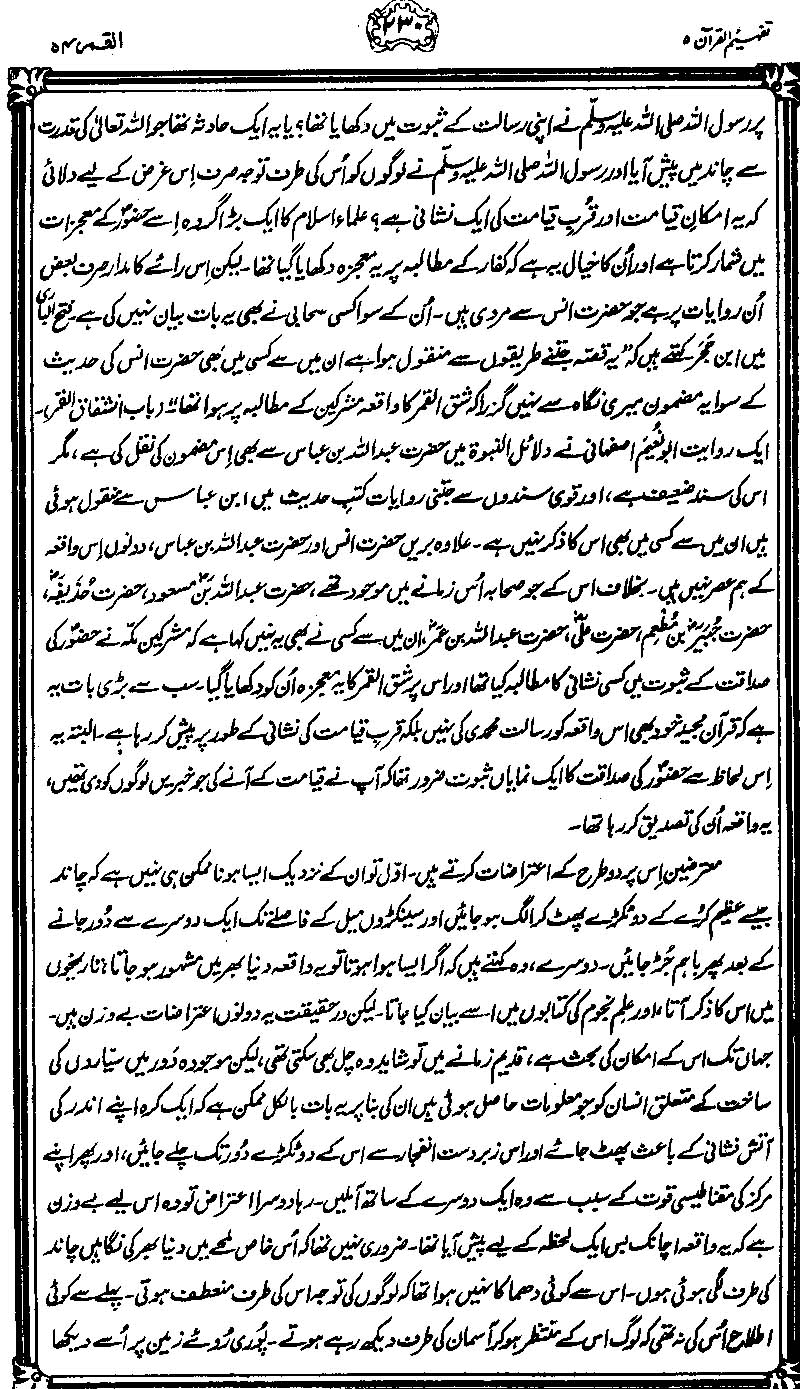 تفہیم القرآن ۵
۲۳۰
القمر ۵۴
پر رسول اللہ صلی اللہ علیہ وسلّم نے اپنی رسالت کے ثبوت میں دکھایا تھا؟ یا یہ ایک حادثہ تھا جو اللہ تعالیٰ کی قدرت
سے چاند میں پیش آیا اور رسول اللہ صلی اللہ علیہ وسلّم نے لوگوں کو اُس کی طرف توجہ صرف اِس غرض کے لیے دلائی
کہ یہ امکانِ قیامت اور قُربِ قیامت کی ایک نشانی ہے؟ علماء اسلام کا ایک بڑا گروہ اِسے حضورؐ کے معجزات
میں شمار کرتا ہے اور اُن کا خیال یہ ہے کہ کفار کے مطالبہ پر یہ معجزہ دکھایا گیا تھا۔ لیکن اِس رائے کا مدار صرف بعض
اُن روایات پر ہے جو حضرت انس سے مروی ہیں۔ اُن کے سوا کسی صحابی نے بھی یہ بات بیان نہیں کی ہے۔ فتح الباری
میں ابن حَجَر کہتے ہیں کہ "یہ قصّہ جتنے طریقوں سے منقول ہوا ہے ان میں سے کسی میں بھی حضرت انس کی حدیث
کے سوا یہ مضمون میری نگاہ سے نہیں گزرا کہ شق القمر کا واقعہ مشرکین کے مطالبہ پر ہوا تھا" (باب انشقاق القمر)۔
ایک روایت ابو نُعیم اصفہانی نے دلائل النبوۃ میں حضرت عبداللہ بن عباس سے بھی اِس مضمون کی نقل کی ہے، مگر
اس کی سند ضعیف ہے، اور قوی سندوں سے جتنی روایات کتبِ حدیث میں ابن عباس سے منقول ہوئی
ہیں ان میں سے کسی میں بھی اس کا ذکر نہیں ہے۔ علاوہ بریں حضرت انس اور حضرت عبداللہ بن عباس، دونوں اِس واقعہ
کے ہم عصر نہیں ہیں۔ بخلاف اس کے جو صحابہ اُس زمانے میں موجود تھے، حضرت عبداللہ بنؓ مسعود، حضرت حُذَیفہؓ،
حضرت جُبیرؓ بن مُطعِم، حضرت علیؓ، حضرت عبداللہ بن عمرؓ، ان میں سے کسی نے بھی یہ نہیں کہا ہے کہ مشرکین مکّہ نے حضورؐ کی
صداقت کے ثبوت میں کسی نشانی کا مطالبہ کیا تھا اور اس پر شق القمر کا یہ معجزہ اُن کو دکھایا گیا۔ سب سے بڑی بات یہ
ہے کہ قرآن مجید خود بھی اس واقعہ کو رسالت محمدی کی نہیں بلکہ قربِ قیامت کی نشانی کے طور پر پیش کر رہا ہے۔ البتہ یہ
اِس لحاظ سے حضورؐ کی صداقت کا ایک نمایاں ثبوت ضرور تھا کہ آپ نے قیامت کے آنے کی جو خبریں لوگوں کو دی تھیں،
یہ واقعہ اُن کی تصدیق کر رہا تھا۔
معترضین اِس پر دو طرح کے اعتراضات کرتے ہیں۔ اوّل تو ان کے نزدیک ایسا ہونا ممکن ہی نہیں ہے کہ چاند
جیسے عظیم کُرے کے دو ٹکڑے پھٹ کر الگ ہو جائیں اور سینکڑوں میل کے فاصلے تک ایک دوسرے سے دُور جانے
کے بعد پھر باہم جُڑ جائیں۔ دوسرے، وہ کہتے ہیں کہ اگر ایسا ہوا ہوتا تو یہ واقعہ دنیا بھر میں مشہور ہو جاتا، تاریخوں
میں اس کا ذکر آتا، اور علمِ نجوم کی کتابوں میں اسے بیان کیا جاتا۔ لیکن درحقیقت یہ دونوں اعتراضات بے وزن ہیں۔
جہاں تک اس کے امکان کی بحث ہے، قدیم زمانے میں تو شاید وہ چل بھی سکتی تھی، لیکن موجودہ دَور میں سیّاروں کی
ساخت کے متعلق انسان کو جو معلومات حاصل ہوئی ہیں ان کی بنا پر یہ بات بالکل ممکن ہے کہ ایک کرہ اپنے اندر کی
آتش فشانی کے باعث پھٹ جائے اور اس زبردست انفجار سے اس کے دو ٹکڑے دُور تک چلے جائیں، اور پھر اپنے
مرکز کی مقناطیسی قوت کے سبب سے وہ ایک دوسرے کے ساتھ آملیں۔ رہا دوسرا اعتراض تو وہ اس لیے بے وزن
ہے کہ یہ واقعہ اچانک بس ایک لحظہ کے لیے پیش آیا تھا۔ ضروری نہیں تھا کہ اُس خاص لمحے میں دنیا بھر کی نگاہیں چاند
کی طرف لگی ہوئی ہوں۔ اس سے کوئی دھماکا نہیں ہوا تھا کہ لوگوں کی توجہ اس کی طرف منعطف ہوتی۔ پہلے سے کوئی
اطلاع اُس کی نہ تھی کہ لوگ اس کے منتظر ہو کر آسمان کی طرف دیکھ رہے ہوتے۔ پُوری رُوئے زمین پر اُسے دیکھا